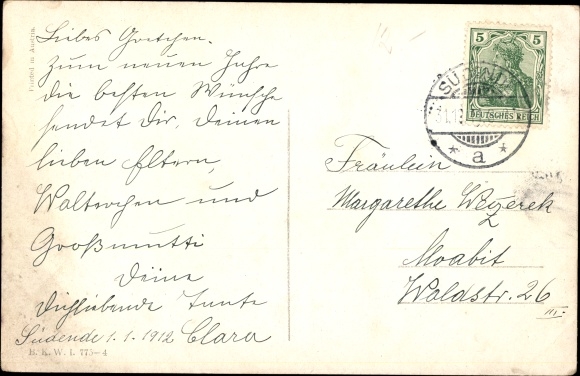 Liebes Gretchen.
Zum neuen Jahre
die besten Wünsche
sendet Dir, Deinen
lieben Eltern,
Walterchen und
Großmutti
Deine
Dichliebende Tante
Südende 1.1.1912 Clara
B. K. W. I. 775-4
Printed in Austria.
5 5
DEUTSCHES REICH
SÜDENDE
* a *
Fräulein
Margarethe
Moabit
Waldstr. 26
III.